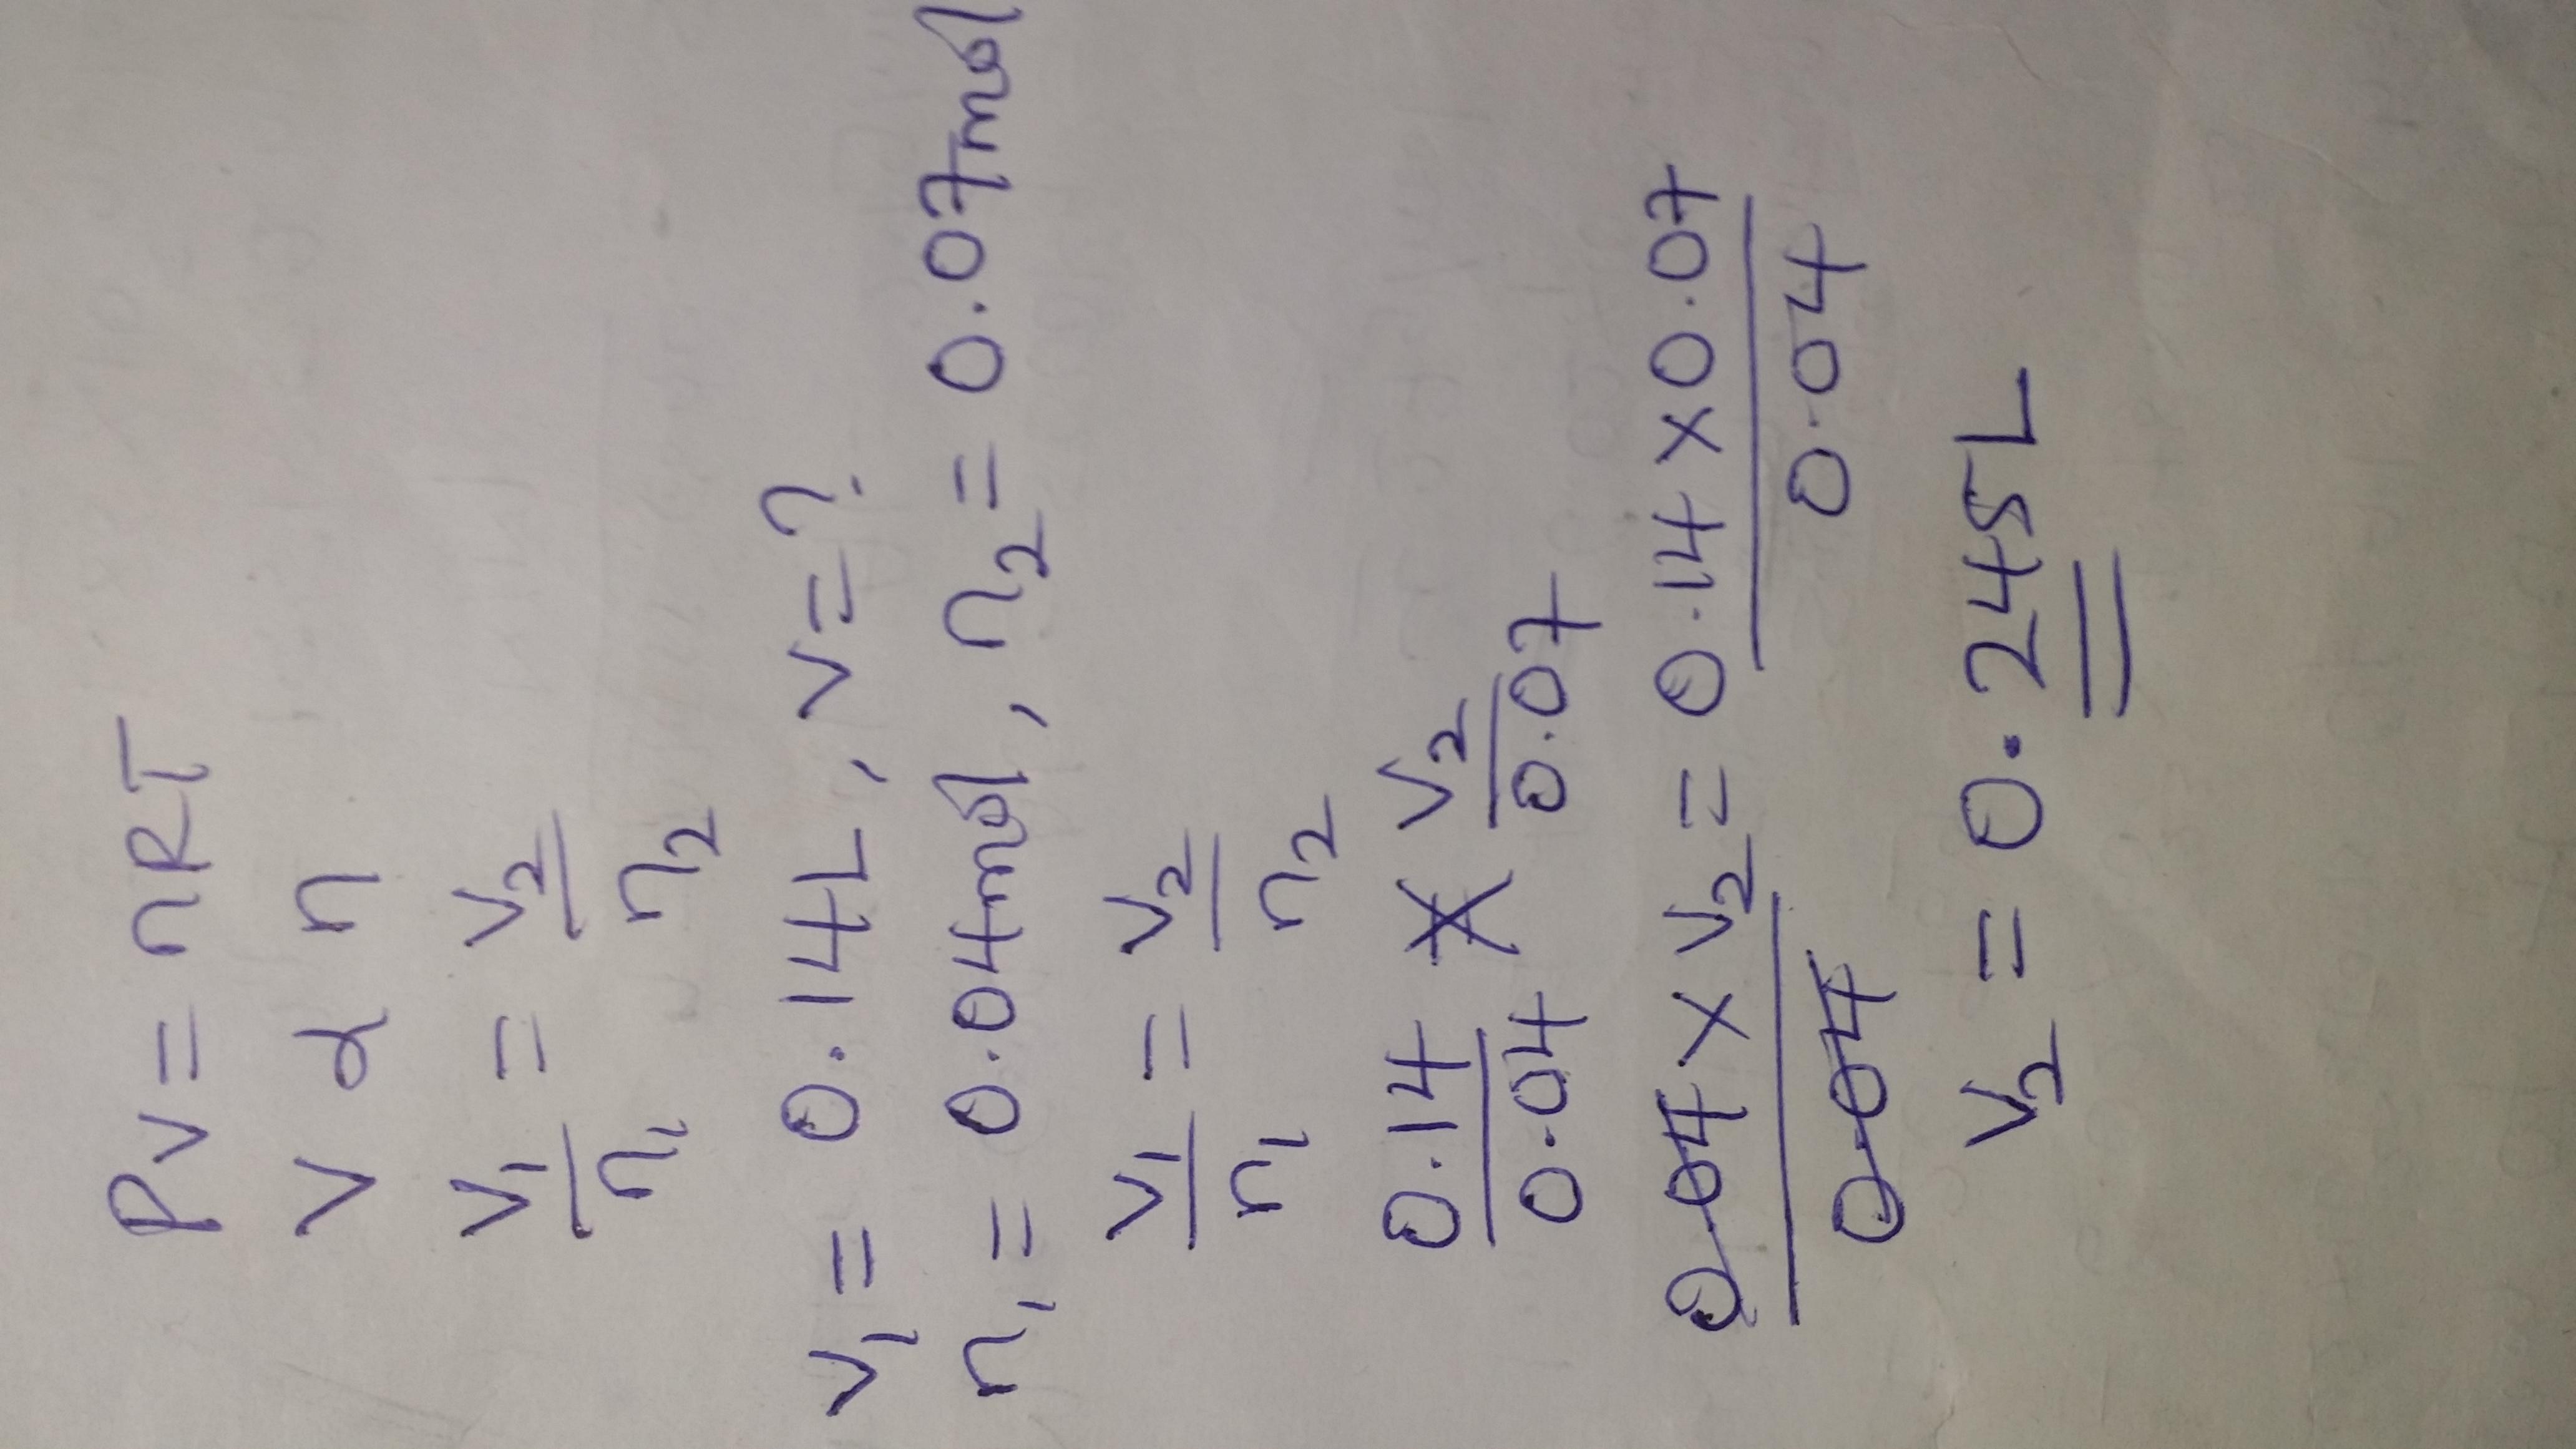 PV = nRT
V α n
V₁/n₁ = V₂/n₂
V₁ = 0.14L, V=?
n₁ = 0.04mol, n₂ = 0.07mol
V₁/n₁ = V₂/n₂
0.14/0.04 X V₂/0.07
0.04 x V₂/0.04 = 0.14 x 0.07/0.04
V₂ = 0.245L